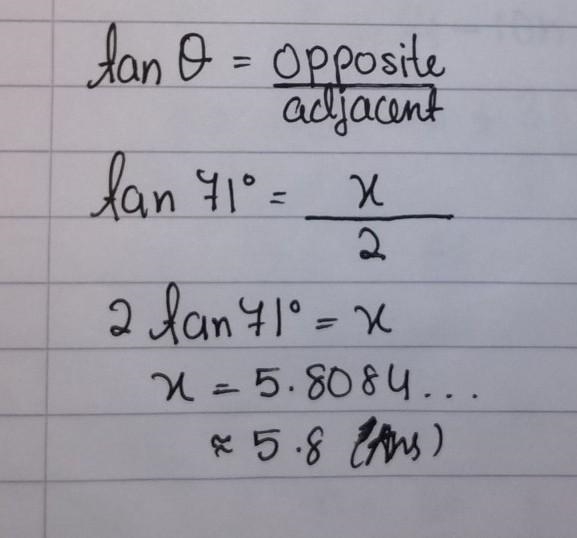 tan θ = opposite / adjacent
tan 71° = x / 2
2 tan 71° = x
x = 5.8084...
≈ 5.8 (Ans)